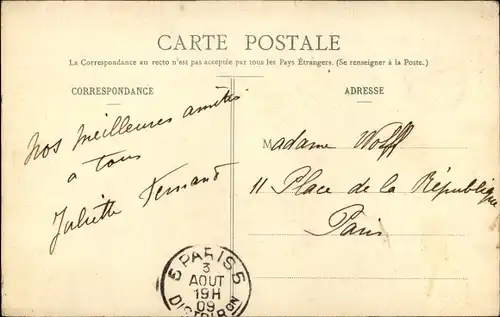 CARTE POSTALE
La Correspondance au recto n'est pas acceptée par tous les Pays Étrangers. (Se renseigner à la Poste.)
CORRESPONDANCE
Nos meilleures amitiés
a tous
Juliette Fernand
ADRESSE
Madame Wolff
11 Place de la République
Paris
5 PARIS 5
3
AOUT
19H
09
DISTRIBON